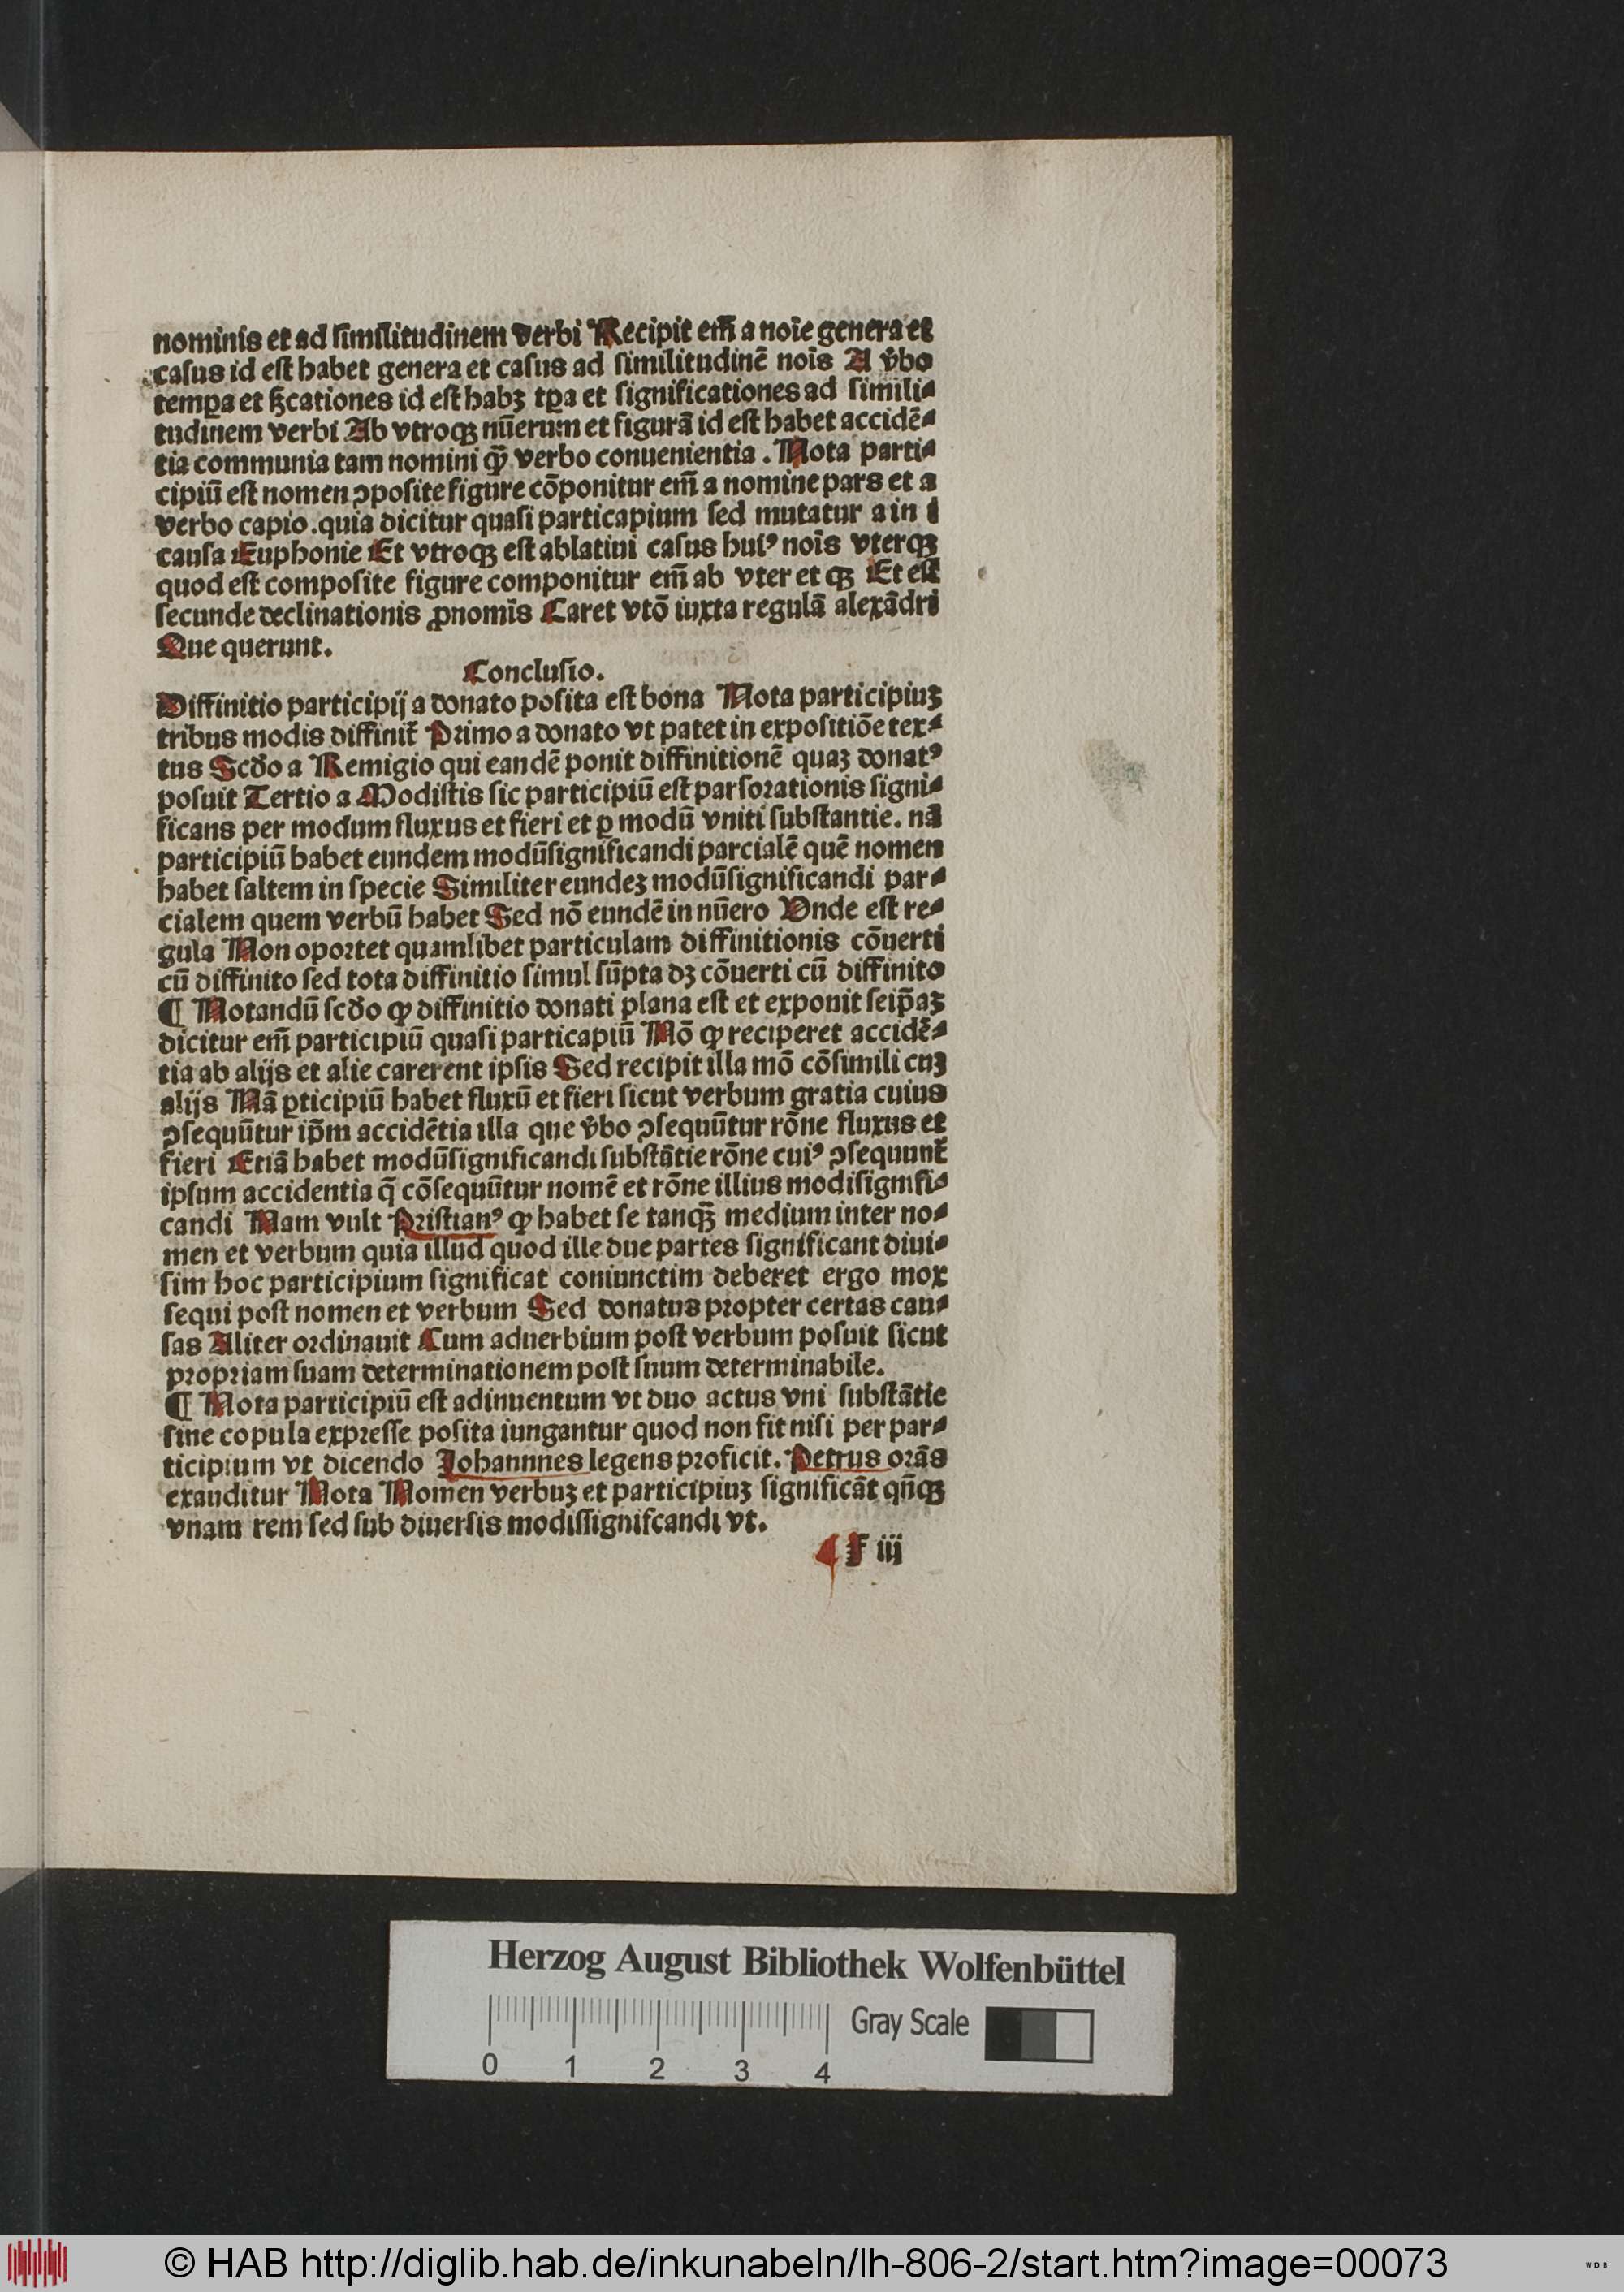 nominis et ad similitudinem verbi Recipit em̄ a noīe genera et
casus id est habet genera et casus ad similitudinē noīs A v̄bo
temꝑa et ſſcationes id est habꝫ tꝑa et significationes ad simili⸗
tudinem verbi Ab vtroqꝫ nūerum et figurā id est habet accidē⸗
tia communia tam nomini qꝫ̄ verbo conuenientia. Nota parti⸗
cipiū est nomen ꝯposite figure cōponitur em̄ a nomine pars et a
verbo capio. quia dicitur quasi particapium sed mutatur a in i
causa Euphonie Et vtroqꝫ est ablatiui casus huiꝰ noīs vterqꝫ
quod est composite figure componitur em̄ ab vter et qꝫ Et est
secunde declinationis ꝓnomīs Caret vtō iuxta regulā alexādri
Que querunt.
Conclusio.
Diffinitio participij a donato posita est bona Nota participiuꝫ
tribus modis diffinit᷑ Primo a donato vt patet in expositiōe tex⸗
tus Scd̄o a Remigio qui eandē ponit diffinitionē quaꝫ donatꝰ
posuit Tertio a Modistis sic participiū est pars orationis signi⸗
ficans per modum fluxus et fieri et ꝑ modū vniti substantie. nā
participiū habet eundem modūsignificandi parcialē quē nomen
habet saltem in specie Similiter eundeꝫ modūsignificandi par⸗
cialem quem verbū habet Sed nō eundē in nūero Vnde est re⸗
gula Non oportet quamlibet particulam diffinitionis cōuerti
cū diffinito sed tota diffinitio simul sūpta dꝫ cōuerti cū diffinito
¶ Notandū scd̄o ꝙ diffinitio donati plana est et exponit seip̄aꝫ
dicitur em̄ participiū quasi particapiū Nō ꝙ reciperet accidē⸗
tia ab alijs et alie carerent ipsis Sed recipit illa mō cōsimili cuꝫ
alijs Nā ꝑticipiū habet fluxū et fieri sicut verbum gratia cuius
ꝯsequūtur ip̄m accidētia illa que v̄bo ꝯsequūtur rōne fluxus et
fieri Etiā habet modūsignificandi substātie rōne cuiꝰ ꝯsequunt᷑
ipsum accidentia q̄ cōsequūtur nomē et rōne illius modisignifi⸗
candi Nam vult Pristianꝰ ꝙ habet se tanqꝫ̄ medium inter no⸗
men et verbum quia illud quod ille due partes significant diui⸗
sim hoc participium significat coniunctim deberet ergo mox
sequi post nomen et verbum Sed donatus propter certas cau⸗
sas Aliter ordinauit Cum aduerbium post verbum posuit sicut
propriam suam determinationem post suum determinabile.
¶ Nota participiū est adinuentum vt duo actus vni substātie
sine copula expresse posita iungantur quod non fit nisi per par⸗
ticipium vt dicendo Johannnes legens proficit. Petrus orās
exauditur Nota Nomen verbuꝫ et participiuꝫ significāt qn̄qꝫ
vnam rem sed sub diuersis modissignifcandi vt.
F iij
Herzog August Bibliothek Wolfenbüttel
Gray Scale
0 1 2 3 4
© HAB http://diglib.hab.de/inkunabeln/lh-806-2/start.htm?image=00073
WDB